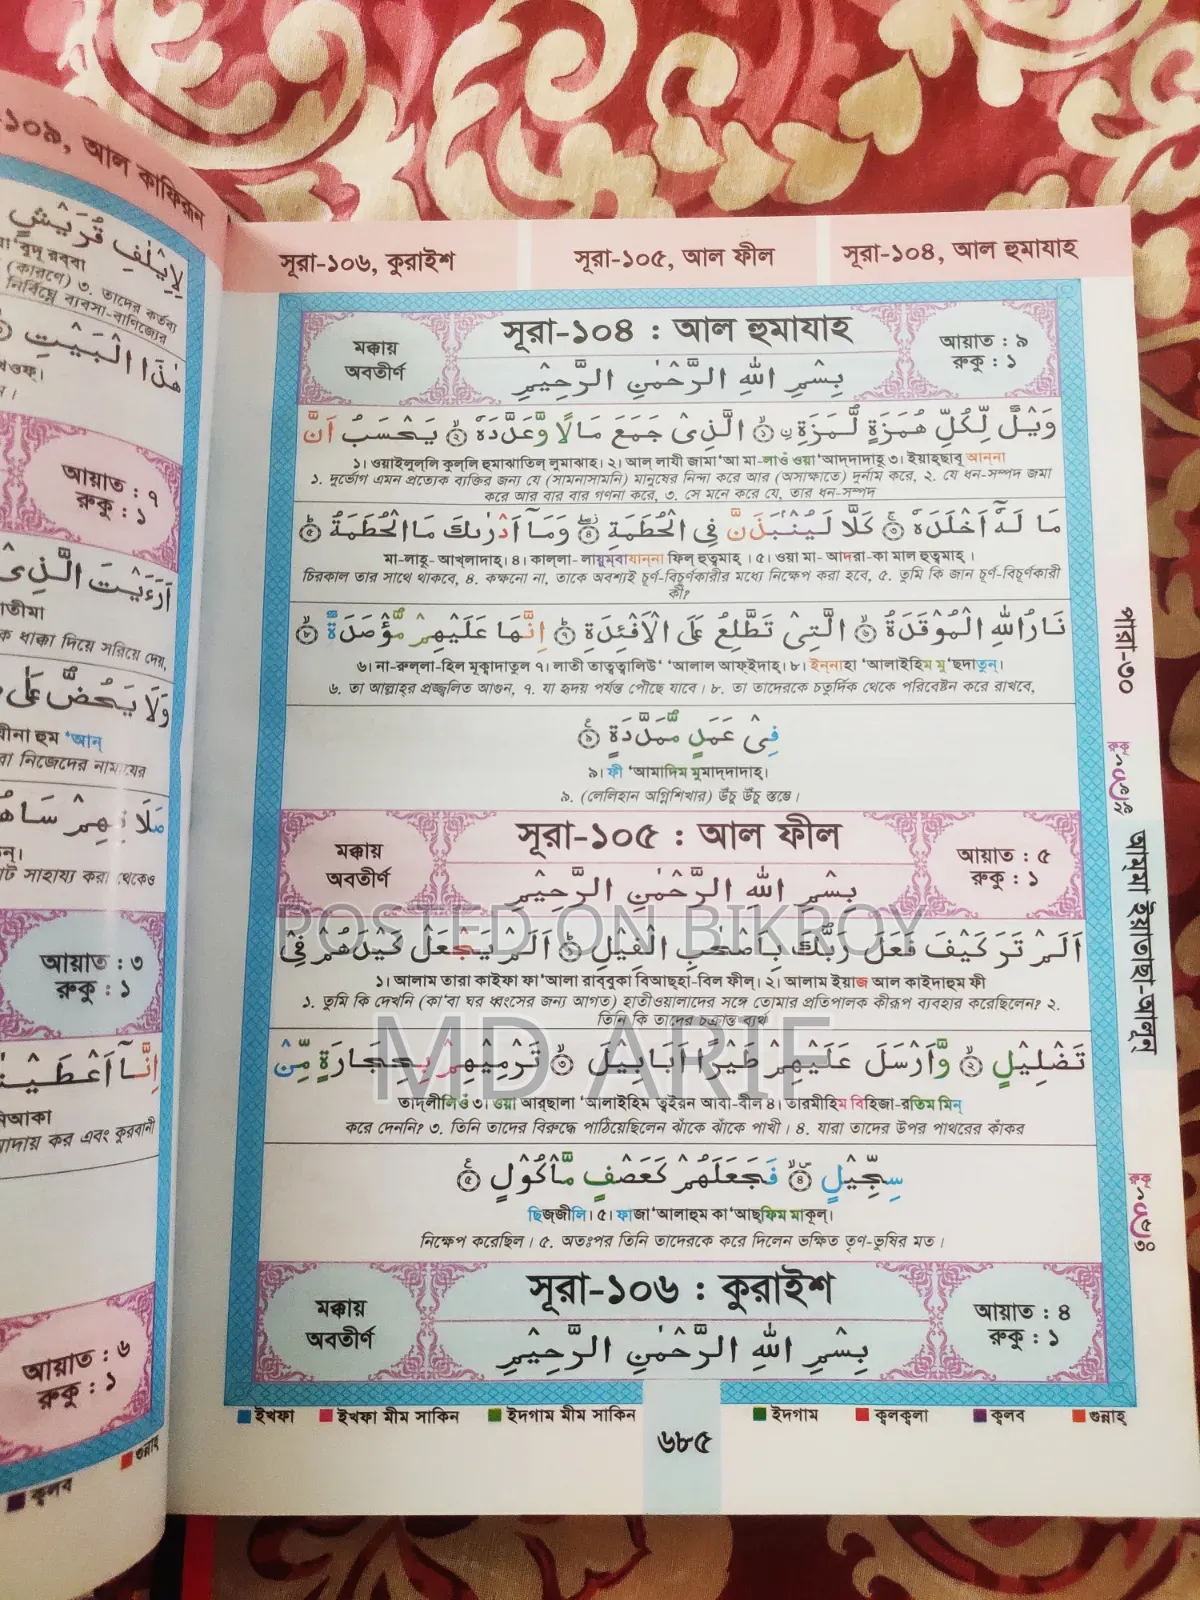 -১০৯, আল কাফিরূন
لِاِيْلٰفِ قُرَيْشٍ
هٰذَا الْبَيْتِ
আয়াত : ৭
রুকু : ১
اَرَءَيْتَ الَّذِىْ
ক ধাক্কা দিয়ে সরিয়ে দেয়,
وَلَا يَحُضُّ عَلٰى
য়ীনা হুম ‘আন্
বা নিজেদের নামাযের
صَلَاتِهِمْ سَاهُ
আয়াত : ৩
রুকু : ১
اِنَّآ اَعْطَيْنٰ
আদায় কর এবং কুরবানী
আয়াত : ৬
রুকু : ১
গুন্নাহ্
ক্বলব
সূরা-১০৬, কুরাইশ
সূরা-১০৫, আল ফীল
সূরা-১০৪, আল হুমাযাহ
মক্কায়
অবতীর্ণ
সূরা-১০৪ : আল হুমাযাহ
بِسْمِ اللّٰهِ الرَّحْمٰنِ الرَّحِيْمِ
আয়াত : ৯
রুকু : ১
وَيْلٌ لِّكُلِّ هُمَزَةٍ لُّمَزَةِ ۙ﴿١﴾ الَّذِىْ جَمَعَ مَالًا وَّعَدَّدَهٗ ۙ﴿٢﴾ يَحْسَبُ اَنَّ
১। ওয়াইলুল্লি কুল্লি হুমাঝাতিল্ লুমাঝাহ। ২। আল্ লাযী জামা‘আ মা-লাওঁ ওয়া ‘আদ্দাদাহূ ৩। ইয়াহ্ছাবু আন্না
১. দুর্ভোগ এমন প্রত্যেক ব্যক্তির জন্য যে (সামনাসামনি) মানুষের নিন্দা করে আর (অসাক্ষাতে) দুর্নাম করে, ২. যে ধন-সম্পদ জমা
করে আর বার বার গণনা করে, ৩. সে মনে করে যে, তার ধন-সম্পদ
مَالَهٗٓ اَخْلَدَهٗ ۚ﴿٣﴾ كَلَّا لَيُنْۢبَذَنَّ فِى الْحُطَمَةِ ۖ﴿٤﴾ وَمَآ اَدْرٰىكَ مَا الْحُطَمَةُ ؕ﴿٥﴾
মা-লাহূ- আখ্লাদাহ্। ৪। কাল্লা- লায়ুম্বাযান্না ফিল্ হুত্বমাহ্ । ৫। ওয়া মা- আদরা-কা মাল হুত্বমাহ্ ।
চিরকাল তার সাথে থাকবে, ৪. কক্ষনো না, তাকে অবশ্যই চূর্ণ-বিচূর্ণকারীর মধ্যে নিক্ষেপ করা হবে, ৫. তুমি কি জান চূর্ণ-বিচূর্ণকারী
কী?
نَارُ اللّٰهِ الْمُوْقَدَةُ ۙ﴿٦﴾ الَّتِىْ تَطَّلِعُ عَلَى الْاَفْئِدَةِ ؕ﴿٧﴾ اِنَّهَا عَلَيْهِمْ مُّؤْصَدَةٌ ۙ﴿٨﴾
৬। না-রুল্লা-হিল মূক্বাদাতুল ৭। লাতী তাত্বত্বালিউ‘ ‘আলাল আফ্ইদাহ্। ৮। ইন্নাহা ‘আলাইহিম মু‘ছদাতুন্।
৬. তা আল্লাহ্‌র প্রজ্জ্বলিত আগুন, ৭. যা হৃদয় পর্যন্ত পৌছে যাবে। ৮. তা তাদেরকে চতুর্দিক থেকে পরিবেষ্টন করে রাখবে,
فِىْ عَمَدٍ مُّمَدَّدَةٍ ﴿٩﴾
৯। ফী ‘আমাদিম মুমাদ্দাদাহ্।
৯. (লেলিহান অগ্নিশিখার) উঁচু উঁচু স্তম্ভে।
মক্কায়
অবতীর্ণ
সূরা-১০৫ : আল ফীল
بِسْمِ اللّٰهِ الرَّحْمٰنِ الرَّحِيْمِ
আয়াত : ৫
রুকু : ১
POSTED ON BIKROY
اَلَمْ تَرَ كَيْفَ فَعَلَ رَبُّكَ بِاَصْحٰبِ الْفِيْلِ ؕ﴿١﴾ اَلَمْ يَجْعَلْ كَيْدَهُمْ فِىْ
১। আলাম তারা কাইফা ফা‘আলা রাব্বুকা বিআছ্হা-বিল ফীল্। ২। আলাম ইয়াজ আল কাইদাহুম ফী
১. তুমি কি দেখনি (কা‘বা ঘর ধ্বংসের জন্য আগত) হাতীওয়ালাদের সঙ্গে তোমার প্রতিপালক কীরূপ ব্যবহার করেছিলেন? ২.
তিনি কি তাদের চক্রান্ত ব্যর্থ
MD ARIF
تَضْلِيْلٍ ۙ﴿٢﴾ وَّاَرْسَلَ عَلَيْهِمْ طَيْرًا اَبَابِيْلَ ۙ﴿٣﴾ تَرْمِيْهِمْ بِحِجَارَةٍ مِّنْ
তাদ্লীলিওঁ ৩। ওয়া আর্ছালা ‘আলাইহিম ত্বইরন আবা-বীল ৪। তারমীহিম বিহিজা-রতিম মিন্
করে দেননি? ৩. তিনি তাদের বিরুদ্ধে পাঠিয়েছিলেন ঝাঁকে ঝাঁকে পাখী। ৪. যারা তাদের উপর পাথরের কাঁকর
سِجِّيْلٍ ۙ﴿٤﴾ فَجَعَلَهُمْ كَعَصْفٍ مَّاْكُوْلٍ ﴿٥﴾
ছিজ্জীলি। ৫। ফাজা‘আলাহুম কা‘আছ্ফিম মাকূল্।
নিক্ষেপ করেছিল। ৫. অতঃপর তিনি তাদেরকে করে দিলেন ভক্ষিত তৃণ-ভুষির মত।
মক্কায়
অবতীর্ণ
সূরা-১০৬ : কুরাইশ
بِسْمِ اللّٰهِ الرَّحْمٰنِ الرَّحِيْمِ
আয়াত : ৪
রুকু : ১
ইখফা
ইখফা মীম সাকিন
ইদগাম মীম সাকিন
ইদগাম
ক্বলক্বলা
ক্বলব
গুন্নাহ্
৬৮৫
পারা-৩০
রুকূ
আম্মা ইয়াতাছা-আলূন
রুকূ